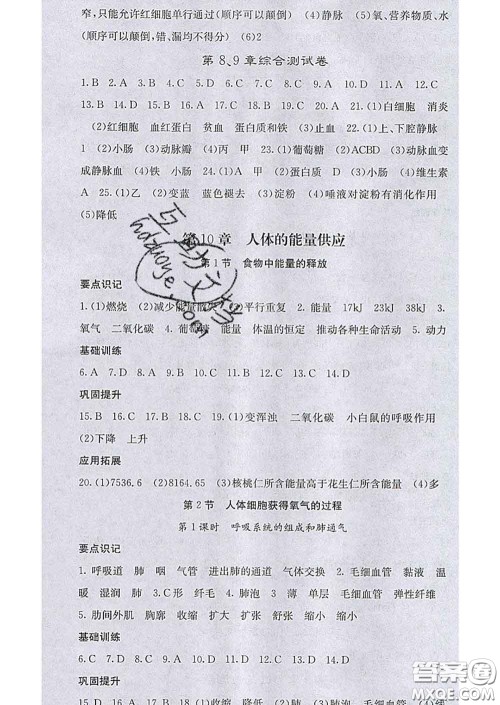 窄,只能允许红细胞单行通过(顺序可以颠倒) (4)静脉 (5)氧、营养物质、水
(顺序可以颠倒,错、漏均不得分) (6)2
第8、9章综合测试卷
1.B 2.A 3.C 4.D 5.C 6.D 7.C 8.D 9.B 10.B 11.A 12.C
13.B 14.D 15.A 16.D 17.B 18.D 19.A 20.A 21.(1)白细胞 消炎
(2)红细胞 血红蛋白 贫血 蛋白质和铁 (3)止血 22.(1)上、下腔静脉
1 (2)小肠 (3)动脉瓣 (4)丙 甲 23.(1)葡萄糖 (2)ACBD (3)动脉血变
成静脉血 (4)铁 小肠 24.(1)A 甲 (2)D (2)蛋白质 (3)小肠 (4)维生素
A 25.(1)乙 (2)变蓝 蓝色褪去 (3)淀粉 (4)唾液对淀粉有消化作用
(5)降低
第10章 人体的能量供应
第1节 食物中能量的释放
要点识记
1.(1)燃烧 (2)减少能量散失 (3)平行重复 2.能量 17kJ 38kJ 3.
氧气 二氧化碳 4.葡萄糖 能量 体温的恒定 推动各种生命活动 5.动力
基础训练
6.A 7.D 8.A 9.B 10.A 11.D 12.C 13.C 14.D
巩固提升
15.B 16.C 17.B 18.C 19.(1)变浑浊 二氧化碳 小白鼠的呼吸作用
(2)下降 上升
应用拓展
20.(1)7536.6 (2)8164.65 (3)核桃仁所含能量高于花生仁所含能量 (4)多
第2节 人体细胞获得氧气的过程
第1课时 呼吸系统的组成和肺通气
要点识记
1.呼吸道 肺 咽 气管 进出肺的通道 气体交换 2.毛细血管 黏液 温
暖 湿润 肺 3.C形 纤毛 4.肺泡 5.薄 单层 毛细血管 弹性纤维
5.肋间外肌 胸廓 收缩 扩大 扩张 舒张 缩小 缩小
基础训练
6.C 7.D 8.D 9.B 10.B 11.C 12.C 13.D 14.D
巩固提升
15.D 16.A 17.B 18.(1)收缩 降低 (2)D (3)肺泡